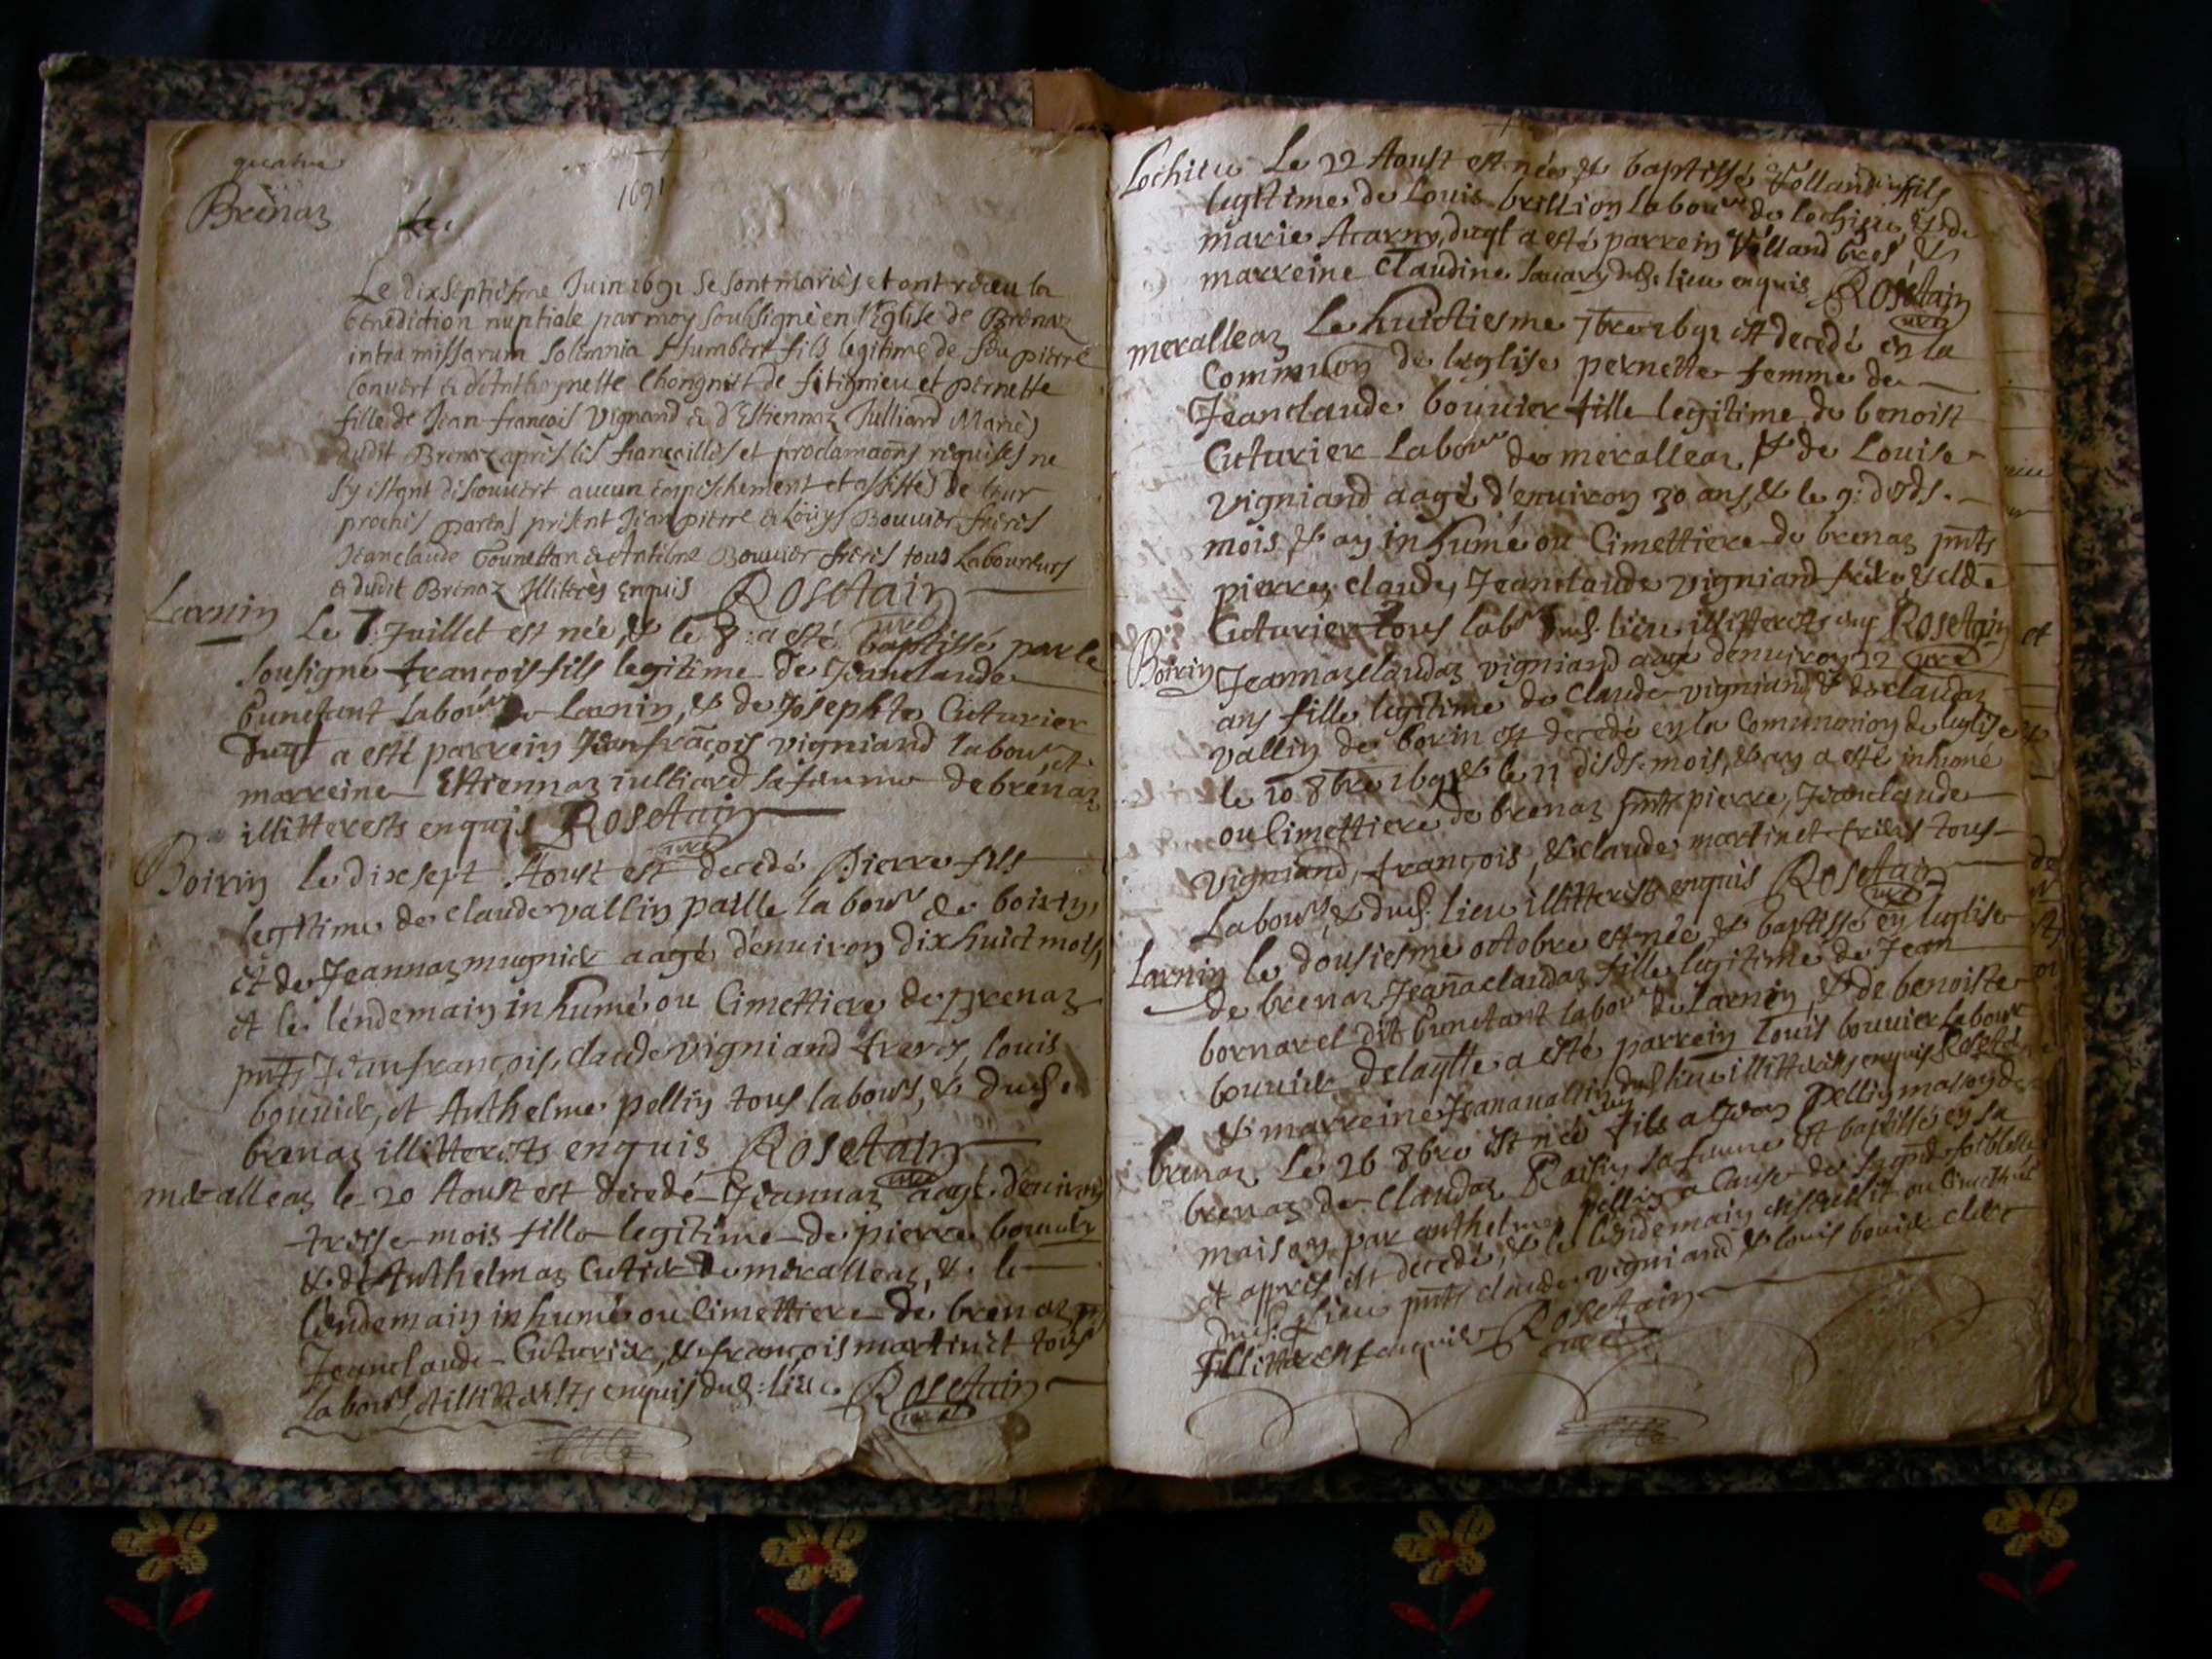 quatre
Brenaz
1691
Le
Le dixseptiesme Juin 1691 se sont mariés et ont receu la
benediction nuptiale par moy soubsigné en l'Eglise de Brenaz
intra missarum solemnia Humbert fils legitime de feu pierre
Convert & d'Anthoynette Chongniet de fitignieu et pernette
fille de Jean francois Vignand & d'Estiennaz Julliard Mariés
dudit Brenaz après les fiancailles et proclamaõns requises ne
s'y estant discouvert aucun empeschement et assistés de leur
proches parens présent Jean pierre & Loüys Bouvier freres
Jeanclaude & Anthlme Bouvier freres tous Laboureurs
& dudit Brenaz Illiterès enquis Rosetain
Larnin Le 7: Juillet est née, & le 8: a esté baptissé par le
sousigne françois fils legitime de Jeanclaude
bunctant labour de Larnin, & de Josephte Cuturier
duqt a esté parrein Jeanfrãçois vigniand labour, et
marreine Ettiennaz iulliard sa femme de brénaz
illitterests enquis Rosetain
curé
Boirin le dixsept Aoust est decedé Pierre fils
legitime de claude vallin paille labour de boirin,
et de Jeannaz mugnier aagé d'enuiron dixhuict mois,
et le lendemain inhumé ou Cimettiere de Brenaz
pnts Jeanfrançois, claude vigniand freres, louis
bouuier, et Anthelme pellin tous labours, & dud.
brenaz illitterests enquis Rosetain
curé
meralleaz le 20 Aoust est decedé Jeannaz aagé d'enuiron
treisse mois fille legitime de pierre bouuier
& d'Anthelmaz Cutier de meralleaz, & le
lendemain inhumé ou Cimettiere de brenaz
Jeanclaude Cuturier, & françois martinet tous
labours, & illitterests enquis dud: lieu. Rosetain
curé
Lochieu Le 22 Aoust est née & baptissé Volland fils
legitime de Louis brillion labour de lochieu, & de
marie duqt a esté parrein Volland bres, &
marreine Claudine sauary dud. lieu enquis Rosetain
curé
meralleaz Le huictiesme 7bre 1691 est decedé en la
Commuõn de leglise pernette femme de
Jeanclaude bouuier fille legitime de benoist
Cuturier Labour de meralleaz & de Louise
vigniand aagé d'enuiron 30 ans, & le 9: desds.
mois & an inhumé ou Cimettiere de brenaz pnts
pierre, claude, Jeanclaude vigniand frere, & clde
Cuturier tous labs dud. lieu illitterests enq Rosetain
curé
Boirin Jeannazclaudaz vigniand aagé denuiron 22
ans fille legitime de Claude vigniand & de claudaz
vallin de borin est decedé en la Communion de leglise
le 10 8bre 1691 & le 11 disds. mois, & an a esté inhumé
ou Cimettiere de brenaz pnts pierre, Jeanclaude
Vigniand, françois, & claude martinet freres tous
Labours, & dud: lieu illitterests enquis Rosetain
curé
Larnin le dousiesme octobre est née & baptissé en leglise
de brenaz Jeañaclaudaz fille legitime de Jean
bornarel dit bunctant labour de Larnin, & de benoiste
bouuier delaqlle a esté parrein Louis bouuier labour
& marreine Jeana uallin dud lieu illitterests enquis Roseta
brenaz Le 26 8bre est née fils a Jean Pellin mason de
brenaz de Claudaz Raisin sa femme et baptissé en sa
maison par anthelme pellin a Cause de sa grd foiblesse
et appres est decedé, & le lendemain enseuelit ou Cimettiere
dud. lieu pnts claude vigniand & louis bouier clerc
Illitterest enquis Rosetain
curé